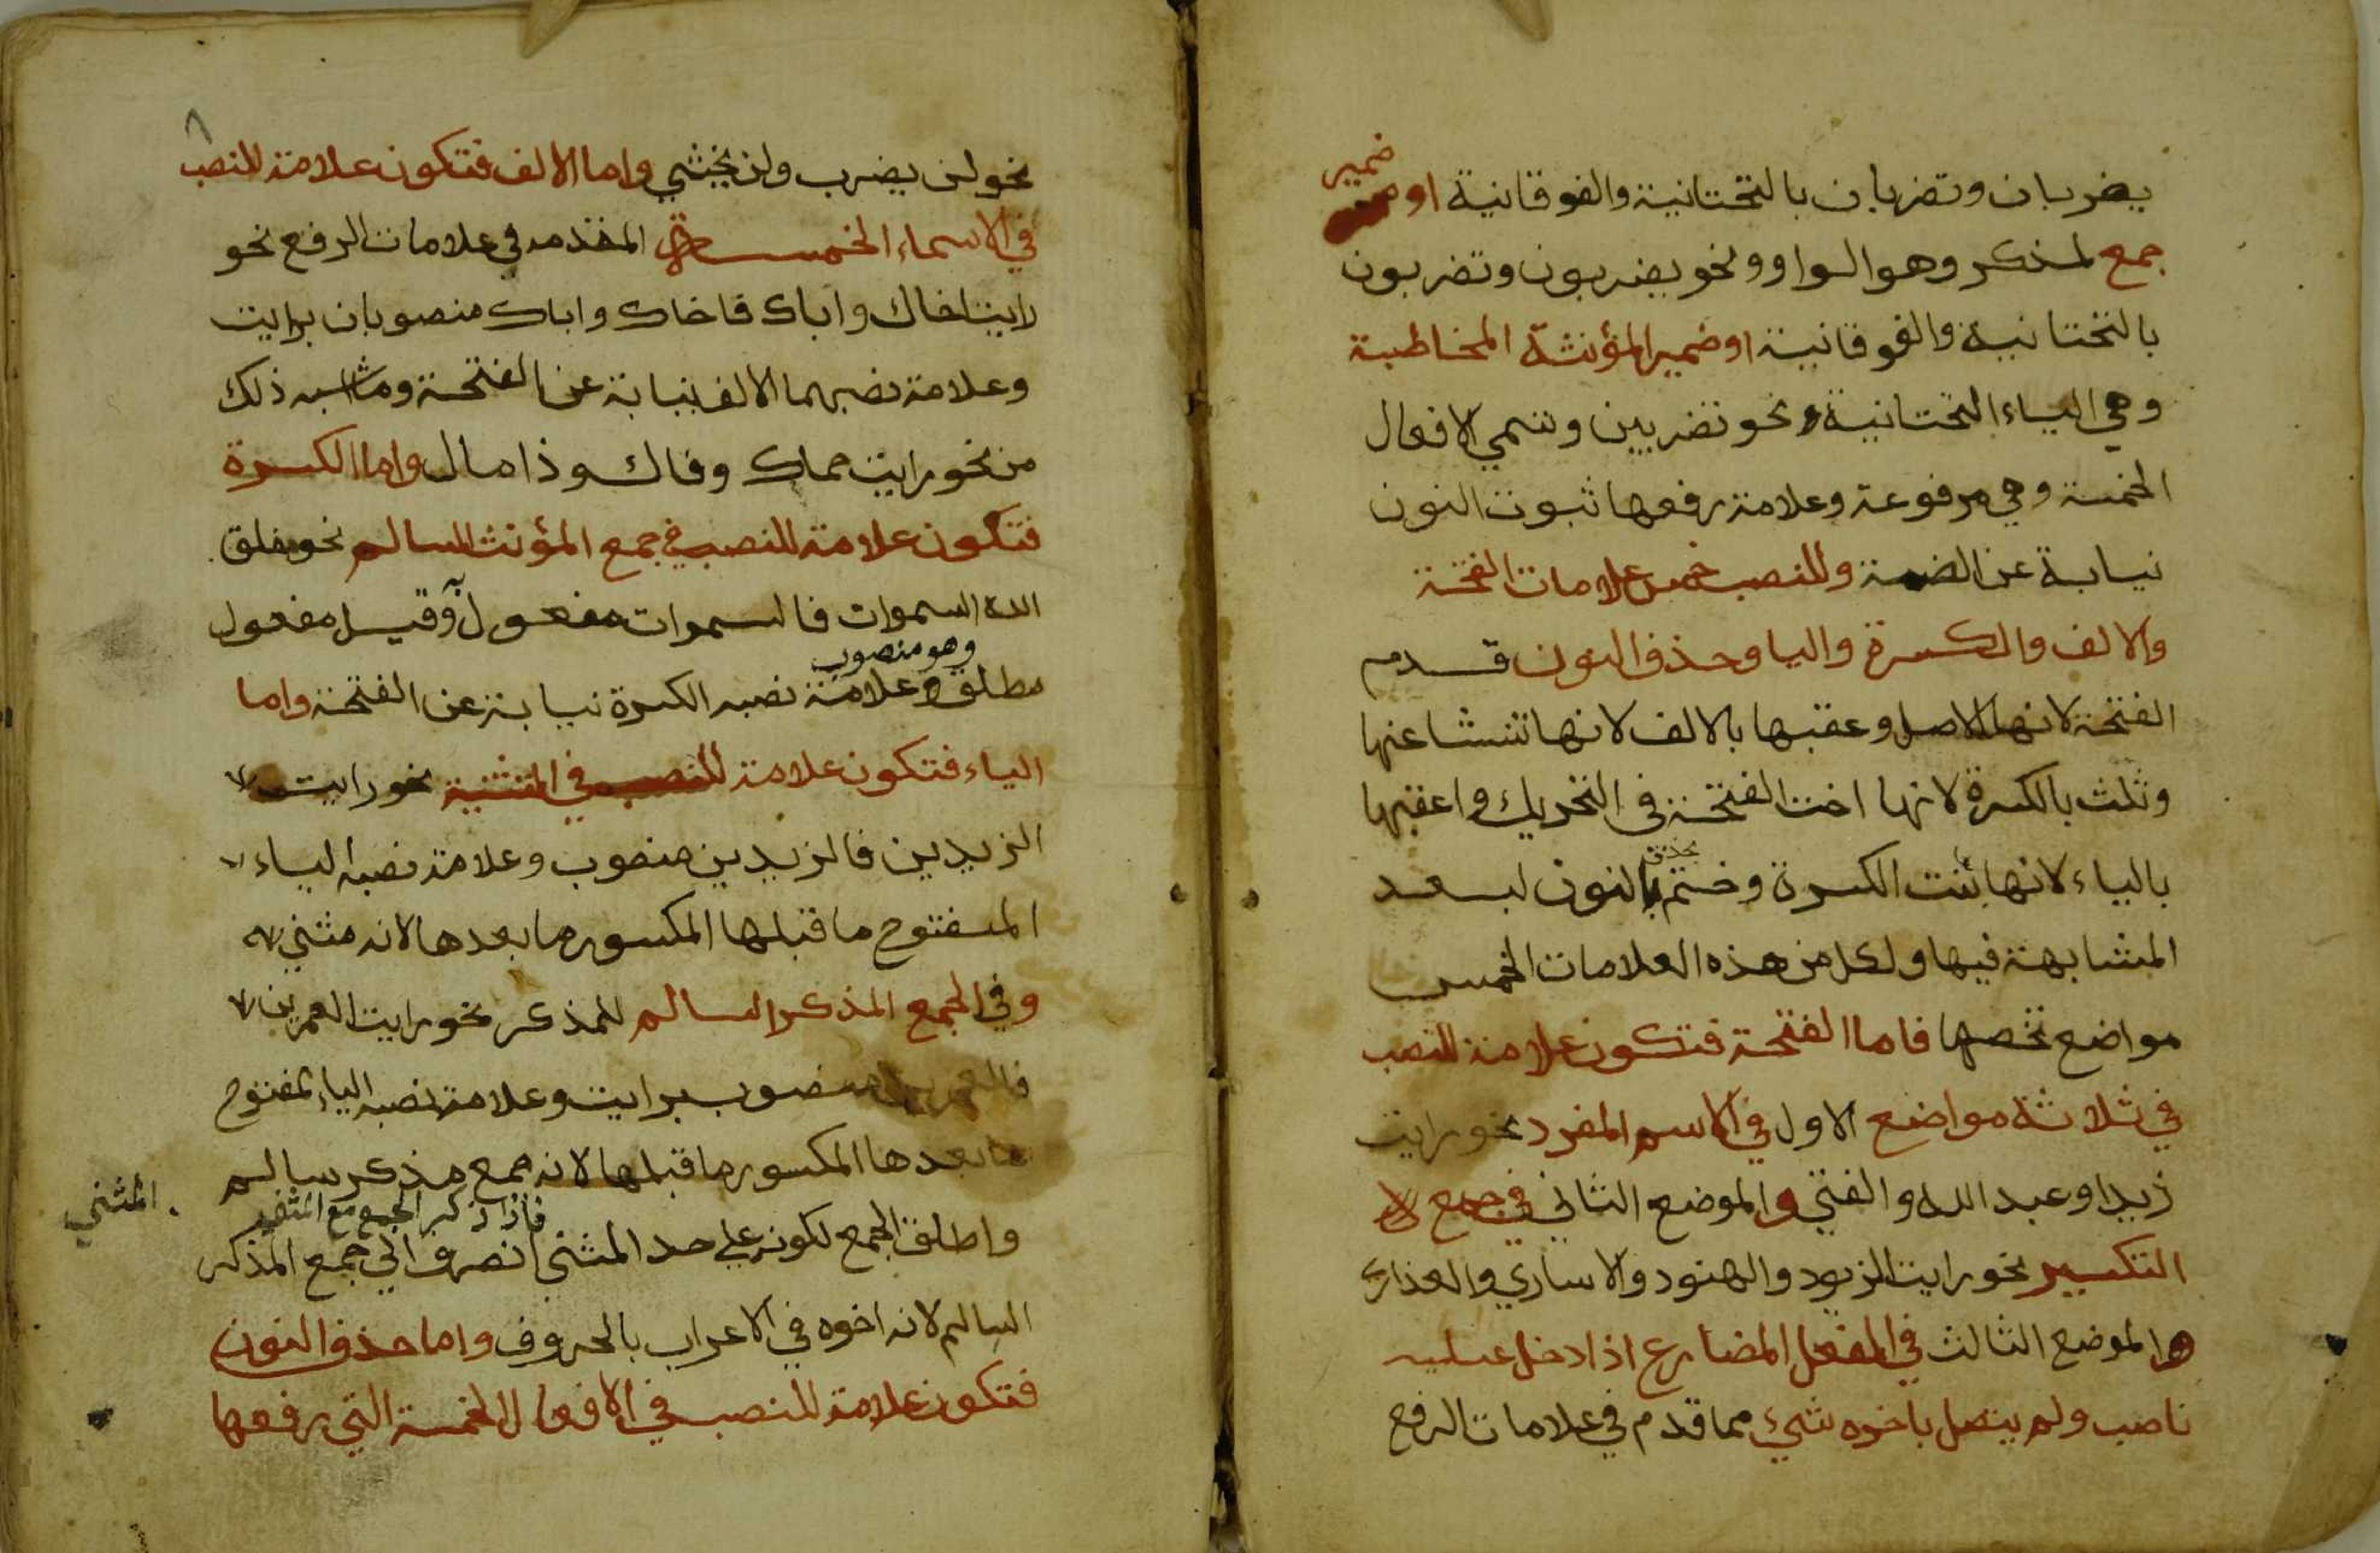 يضربان وتضربان بالتحتانية والفوقانية او ضمير
جمع لمذكر وهو الواو ونحو يضربون وتضربون
بالتحتانية والفوقانية او ضمير المؤنثة المخاطبة
وهي الياء التحتانية نحو تضربين وتسمي الافعال
الخمسة وهي مرفوعة وعلامة رفعها ثبوت النون
نيابة عن الضمة وللنصب خمس علامات الفتحة
والالف والكسرة واليا وحذف النون قدم
الفتحة لانها الاصل وعقبها بالالف لانها تنشا عنها
وثلث بالكسرة لانها اخت الفتحة في التحريك واعقبها
بالياء لانها بنت الكسرة وختم بحذف النون لبعد
المشابهة فيها ولكل من هذه العلامات الخمس
مواضع تخصها فاما الفتحة فتكون علامة للنصب
في ثلاثة مواضع الاول في الاسم المفرد نحو رايت
زيدا وعبد الله والفتي والموضع الثاني في جمع
التكسير نحو رايت الزيود والهنود والاساري والعذاري
والموضع الثالث في الفعل المضارع اذا دخل عليه
ناصب ولم يتصل باخره شيء مما قدم في علامات الرفع
٨
نحو لن يضرب ولن يخشي واما الالف فتكون علامة للنصب
في الاسماء الخمسة المقدمه في علامات الرفع نحو
رايت اخاك واباك فاخاك واباك منصوبان برايت
وعلامة نصبهما الالف نيابة عن الفتحة وما اشبه ذلك
من نحو رايت حماك وفاك وذا مال واما الكسرة
فتكون علامة للنصب في جمع المؤنث السالم نحو خلق
الله السموات فالسموات مفعول به وقيل مفعول
وهو منصوب
مطلق وعلامة نصبه الكسرة نيابة عن الفتحة واما
الياء فتكون علامة للنصب في التثنية نحو رايت
الزيدين فالزيدين منصوب وعلامة نصبه الياء
المفتوح ما قبلها المكسور ما بعدها لانه مثني
وفي الجمع المذكر السالم للمذكر نحو رايت العمرين
فالعمرين منصوب برايت وعلامة نصبه الياء المفتوح
ما بعدها المكسور ما قبلها لانه جمع مذكر سالم
فاذا ذكر الجمع مع المثني
واطلق الجمع لكونه علي حد المثني انصرف الي جمع المذكر
السالم لانه اخوه في الاعراب بالحروف واما حذف النون
فتكون علامة للنصب في الافعال الخمسة التي رفعها